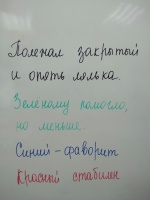 Полежал закрытый
и опять лялька.
Зелёному помогло,
но меньше
Синий - фаворит
Красный стабилен